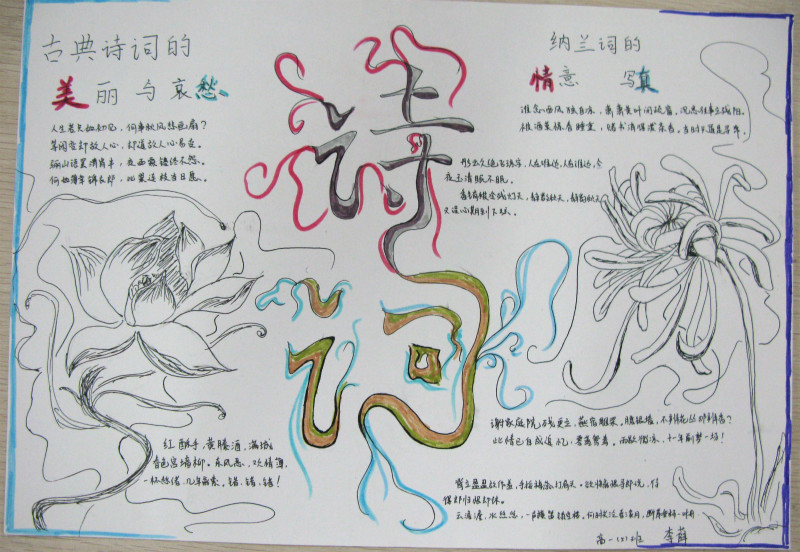 古典诗词的
美丽与哀愁
人生若只如初见,何事秋风悲画扇?
等闲变却故人心,却道故人心易变。
骊山语罢清宵半,夜雨霖铃终不怨。
何如薄幸锦衣郎,比翼连枝当日愿。
诗
词
纳兰词的
情意 写真
谁念西风独自凉,萧萧黄叶闭疏窗,沉思往事立残阳。
被酒莫惊春睡重,赌书消得泼茶香,当时只道是寻常。
久绝飞琼字,人在谁边,人在谁边,今
夜玉清眠不眠。
香销被冷残灯灭,静数秋天,静数秋天,
又误心期到下弦。
谢家庭院,残更立,燕宿雕梁。月度银墙,不辨花丛那辨香?
此情已自成追忆,零落鸳鸯。雨歇微凉,十一年前梦一场!
红酥手,黄縢酒,满城
春色宫墙柳。东风恶,欢情薄,
一杯愁绪,几年离索,错,错,错!
背立盈盈故作羞,手挼梅蕊打肩头。欲将离恨寻郎说,待
得郎归恨却休。
云澹澹,水悠悠,一声横笛锁空楼。何时共泛春溪月,断岸垂杨一叶舟
高一(2)班 李薛